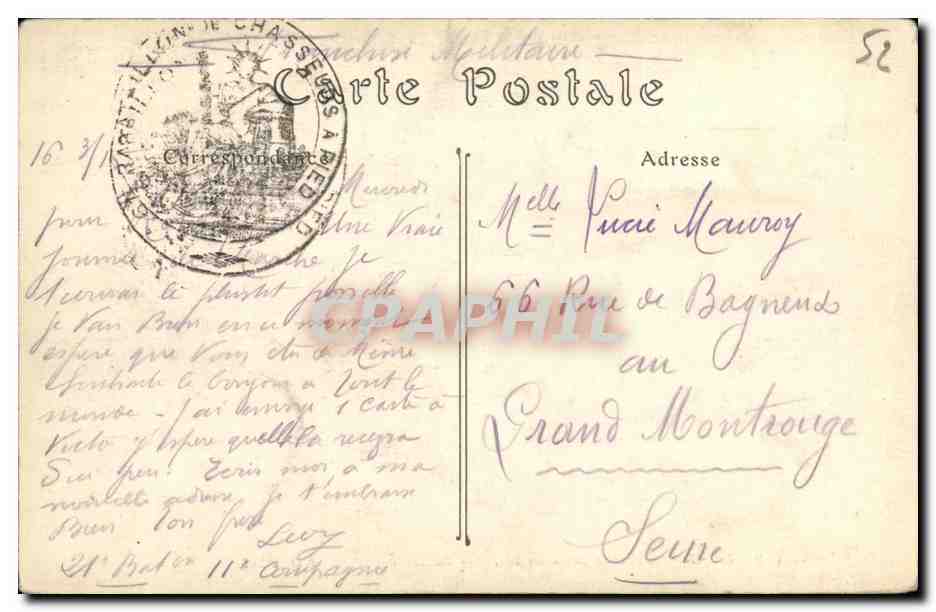 Franchise Militaire
52
Carte Postale
BATAILLON DE CHASSEURS A PIED
Correspondance
Adresse
16 3/1
Mercredi
pour Une Vraie
Journée Je
t'ecrirai le plustot possible
je Vais Bien en ce moment
espere que Vous ete de Même
Souhaite le bonjour a Tout le
monde - J'ai envoyé 1 carte à
Victo j'espere quelle la recevra
Sous peu. Ecris moi a ma
nouvelle adresse. Je t'embrasse
Bien Ton frère
21e Baton 11e Compagnie
Melle Lucie Mauroy
66 Rue de Bagneux
au
Grand Montrouge
Seine
CPAPHIL